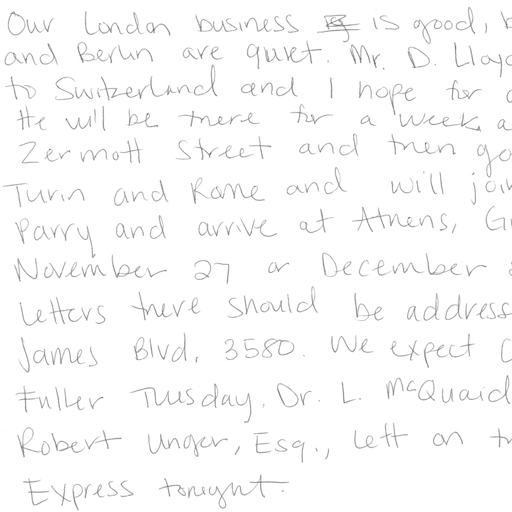 Our London business is good, b
and Berlin are quiet. Mr. D. Lloyd
to Switzerland and I hope for
He will be there for a week a
Zermott Street and then go
Turin and Rome and will join
Parry and arrive at Athens, Gr
November 27 or December
Letters there should be address
James Blvd. 3580. We expect C
Fuller Tuesday. Dr. L. McQuaid
Robert Unger, Esq., left on th
Express tonight.